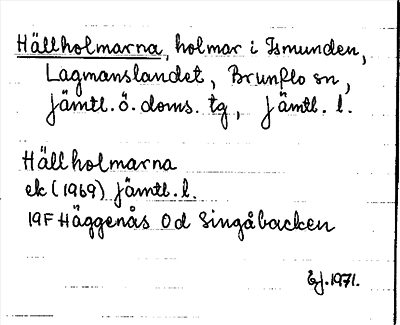 Hällholmarna, holmar i Ismunden,
Lagmanslandet, Brunflo sn,
Jämtl. ö. doms. tg, Jämtl. l.
Hällholmarna
ek (1969) Jämtl. l.
19F Häggenås 0d Singåbacken
Ej. 1971.